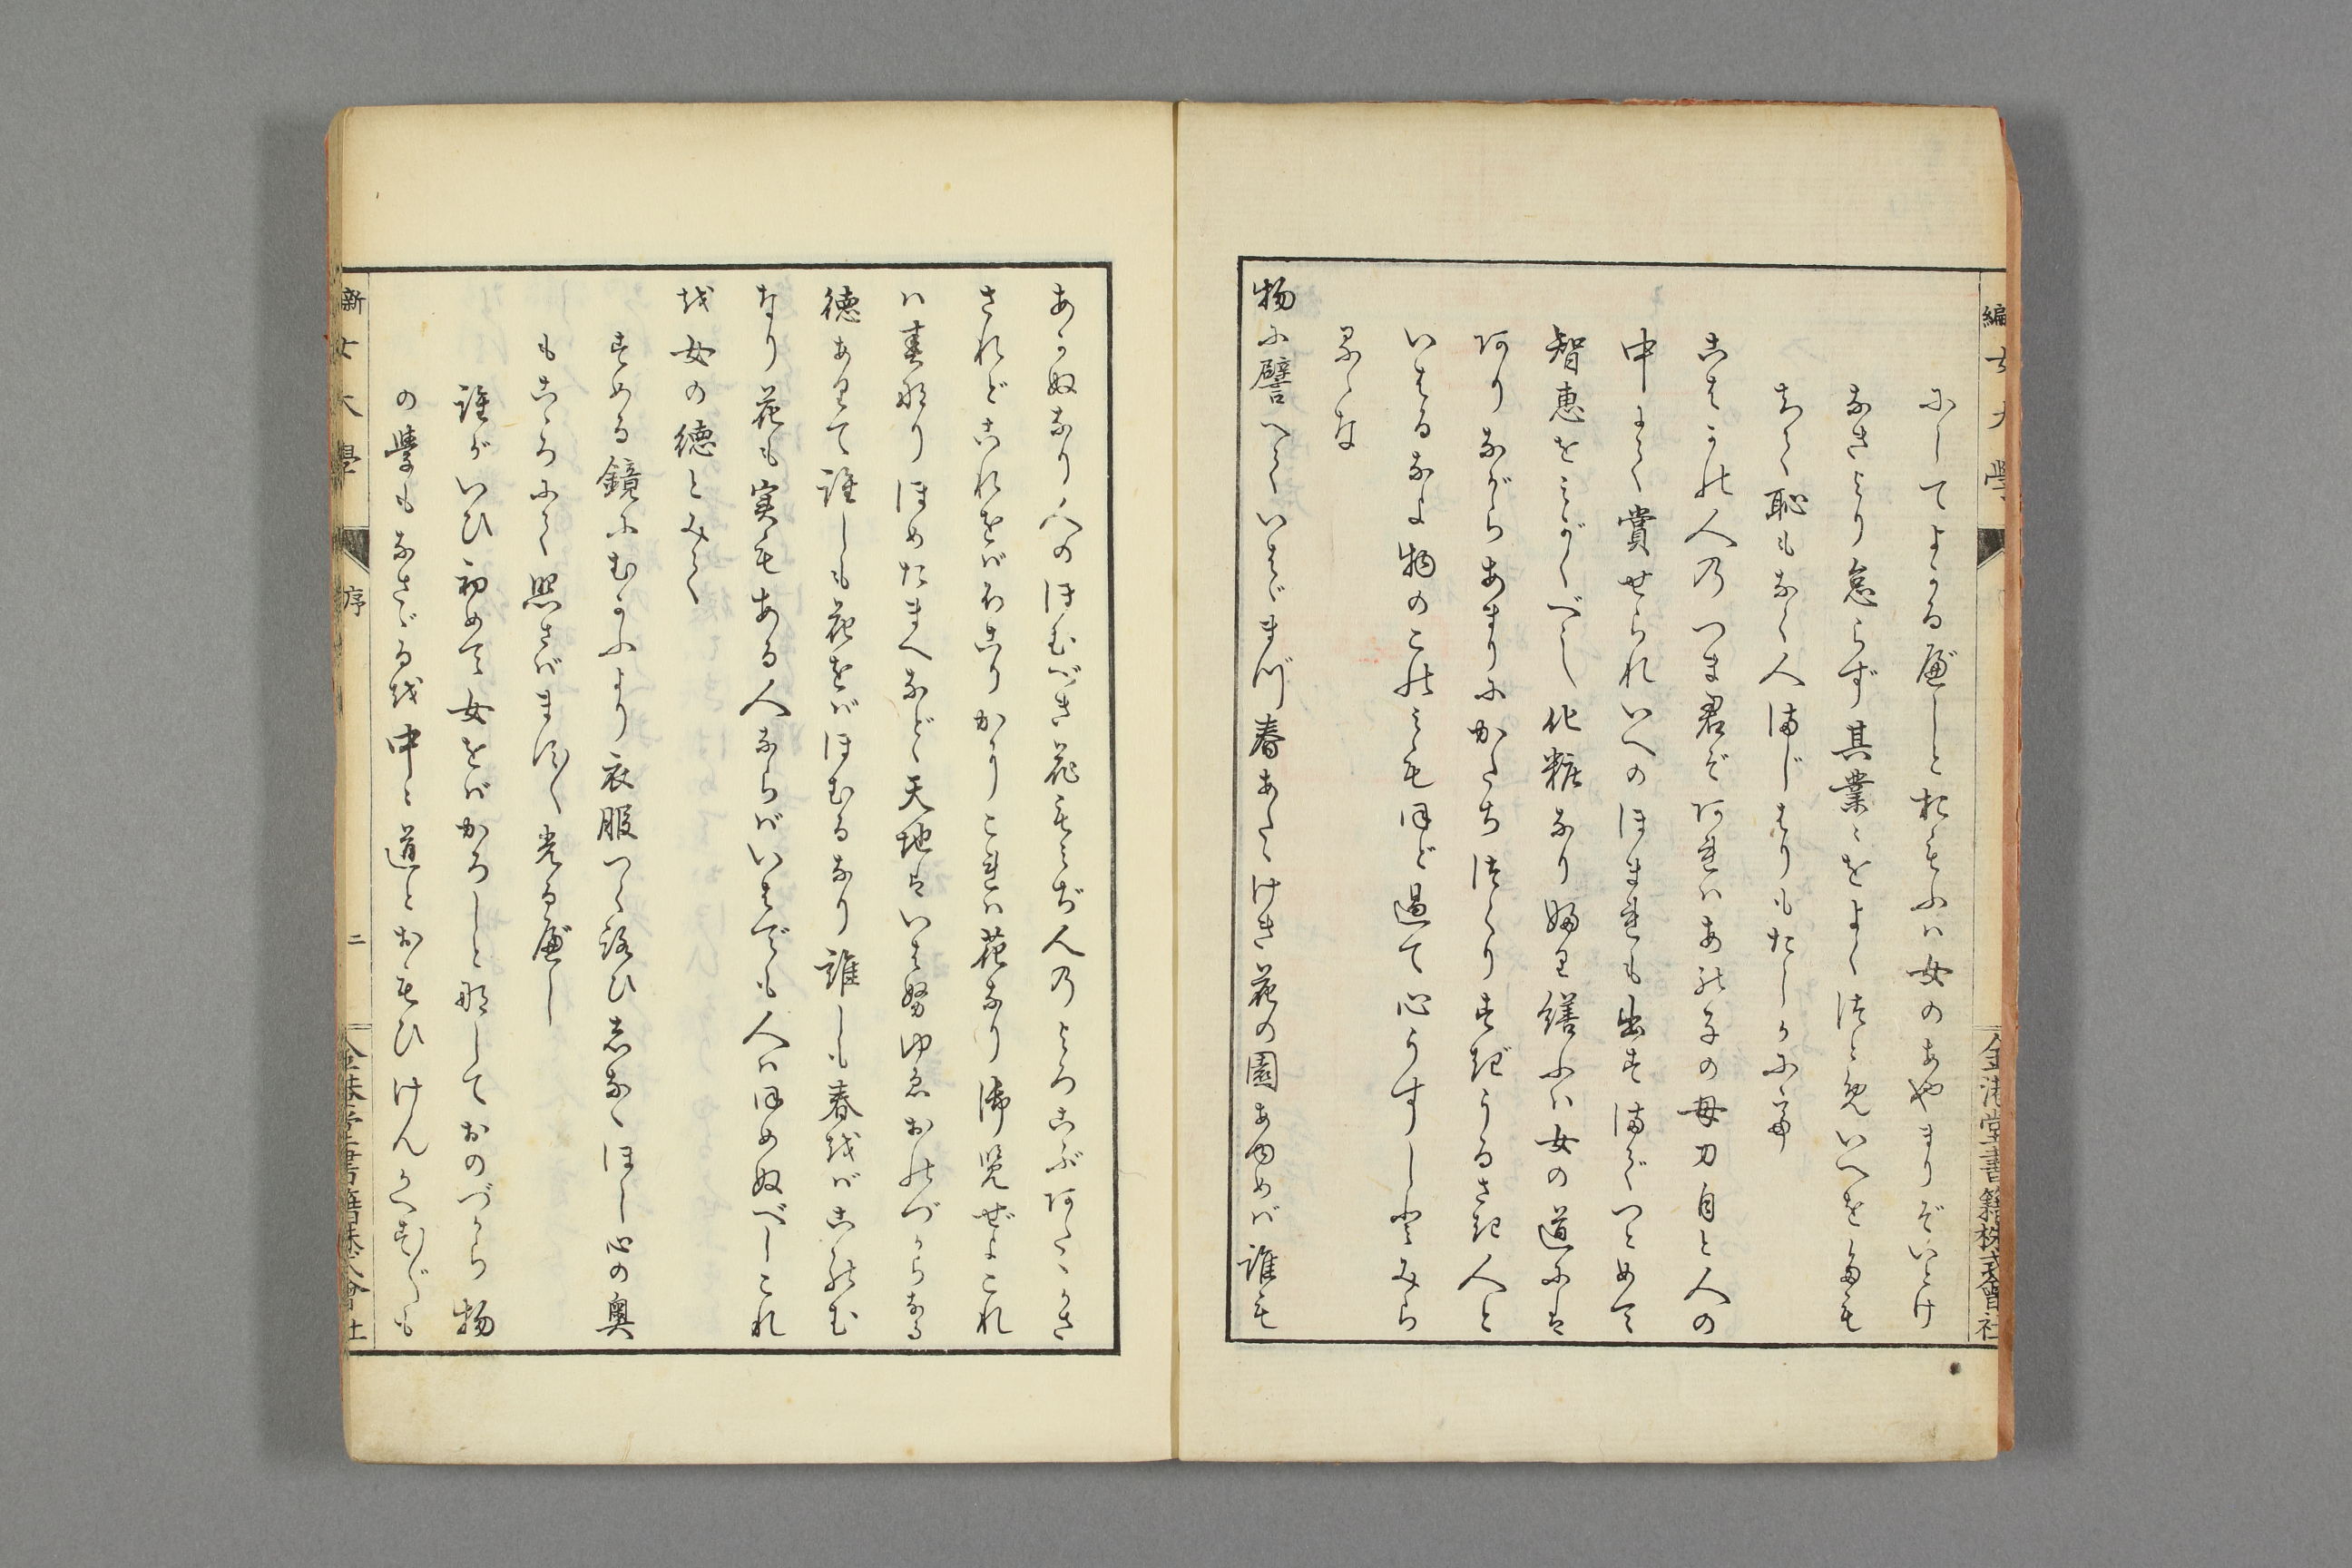 編女大學
金港堂書籍株式會社
にしてよかるべしとおもふは女のあやまりぞいとけ
なきより怠らず其業々をよくつとめいへをもをも
あらく恥もなく人まじはりもたしかに
こはこの人のつま君ぞあれはあの子の母刀自と人の
中よく賞せられいへのほまれも出すまでつとめて
智恵をみがくべし化粧なり婦り繕ふは女の道には
ありながらあまりにかたちつくりすぎうるさき人と
いはるなよ物のこのみもほど過て心うすしとみら
るゝな
物に譬へていはゞまづ春あたゝけき花の園あゆめば誰も
あかぬなり人のほむべき花もみぢ人のよろこぶあたゝかさ
されどこれをばわれこりかうこれは花なり御覧ぜよこれ
は春なりほめたまへなどゝ天地はいはぬゆゑおのづからなる
徳ありて誰しも花をばほむるなり誰しも春をばこのむ
なり花も実もある人ならばいはでも人はほめぬべしこれ
を女の徳とみて
すめる鏡にむかふより衣服つくろひしなくほし心の奥
もこゝろにて照さばますます光るべし
誰がいひ初めて女をばかろしとなしておのづから物
の學もなさゞる を中々道とおもひけんかへすがへすも
新女大學
序
二
金港堂書籍株式會社